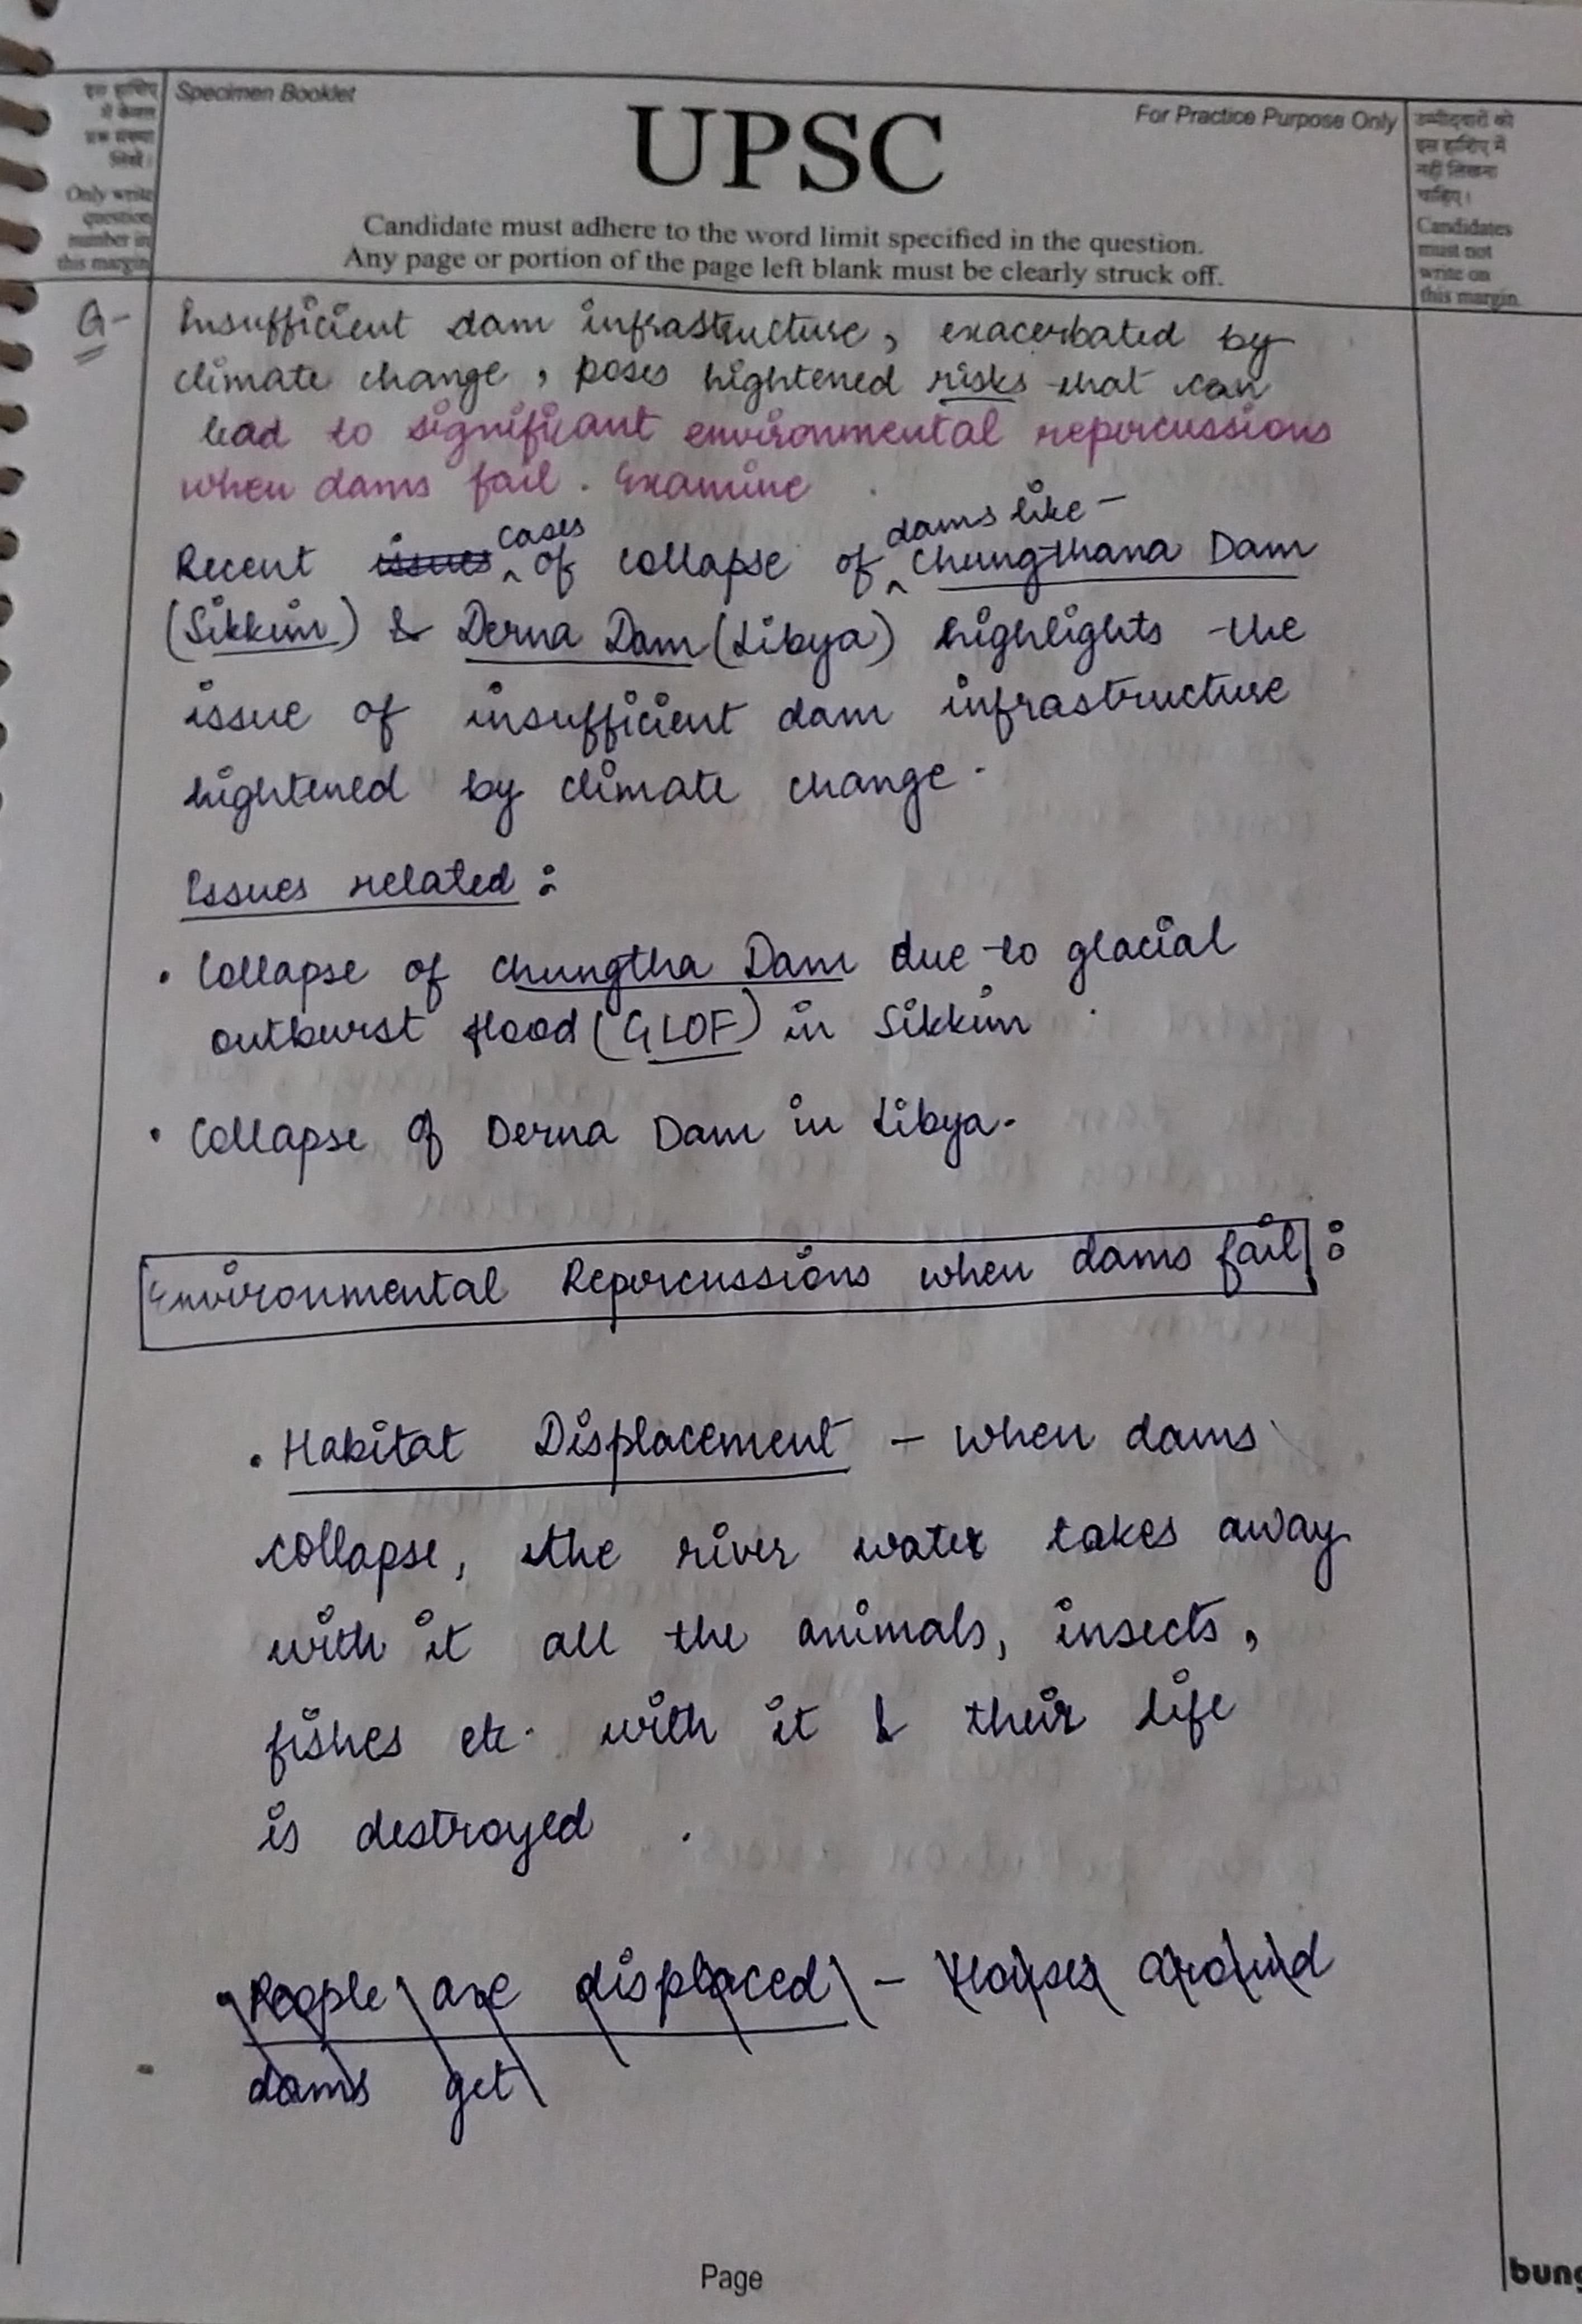 Specimen Booklet
UPSC
For Practice Purpose Only
Candidate must adhere to the word limit specified in the question.
Any page or portion of the page left blank must be clearly struck off.
इस हाशिए
में केवल
प्रश्न संख्या
लिखें।
Only write
question
number in
this margin
उम्मीदवारों को
इस हाशिए में
नहीं लिखना
चाहिए।
Candidates
must not
write on
this margin.
Q-
Insufficient dam infrastructure, exacerbated by
climate change, poses hightened risks that can
lead to significant environmental repercussions
when dams fail. Examine
Recent issues cases of collapse of dams like - Chungthana Dam
(Sikkim) & Derna Dam (Libya) highlights the
issue of insufficient dam infrastructure
hightened by climate change.
Issues related :
• Collapse of Chungtha Dam due to glacial
outburst flood (GLOF) in Sikkim
• Collapse of Derna Dam in Libya.
Environmental Repercussions when dams fail :
• Habitat Displacement - when dams
collapse, the river water takes away
with it all the animals, insects,
fishes etc. with it & their life
is destroyed.
• People are displaced - Houses around
dams get
Page
bung